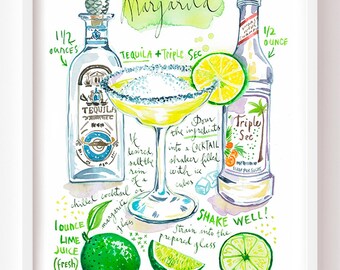 Margarita
1 1/2
OUNCES
TEQUILA + TRIPLE SEC
1/2
OUNCE
TEQUILA
Triple
Sec
If
desired,
salt the
rim of a
chilled cocktail or
margarita
glass
Pour
the ingredients
into a COCKTAIL
shaker filled
with ice
cubes
SHAKE WELL!
Strain into the
prepared glass
1 OUNCE
LIME
JUICE
(fresh)